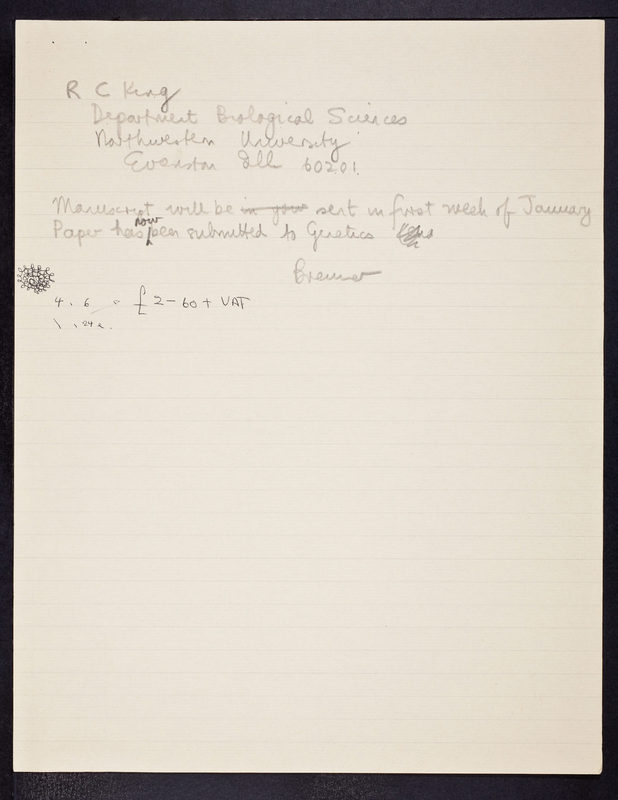 R C King
Department Biological Sciences
Northwestern University
Evanston Ill 60201.
Manuscript will be in your sent in first week of January
Paper has now been submitted to Genetics
Brenner
4. 6 = £2-60 + VAT